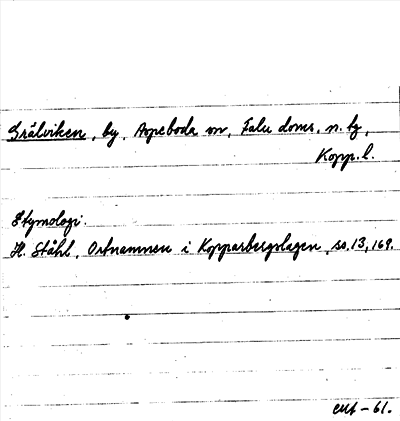 Grälviken, by, Aspeboda sn, Falu doms. n. tg,
Kopp. l.
Etymologi.
H. Ståhl, Ortnamnen i Kopparbergslagen, ss. 13, 169.
-61.